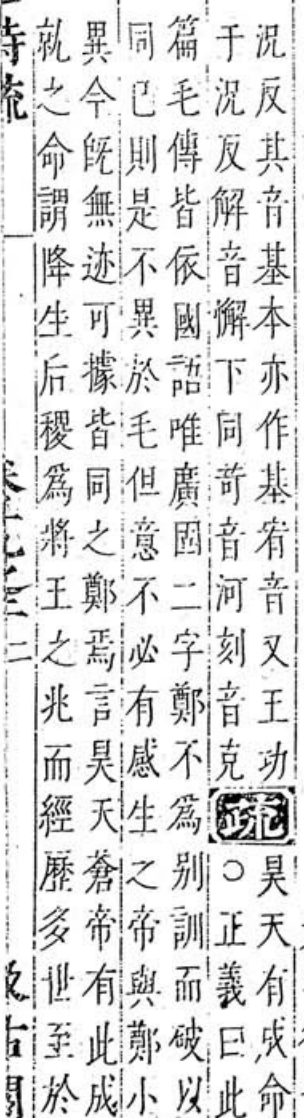 況反其音基本亦作基宥音又王功
于況反解音懈下同苛音河刻音克
疏
昊天有成命
○正義曰此
篇毛傳皆依國語唯廣固二字鄭不為别訓而破以
同已則是不異於毛但意不必有感生之帝與鄭小
異今旣無迹可據皆同之鄭焉言昊天蒼帝有此成
就之命謂降生后稷為將王之兆而經歷多世至於
詩疏 二